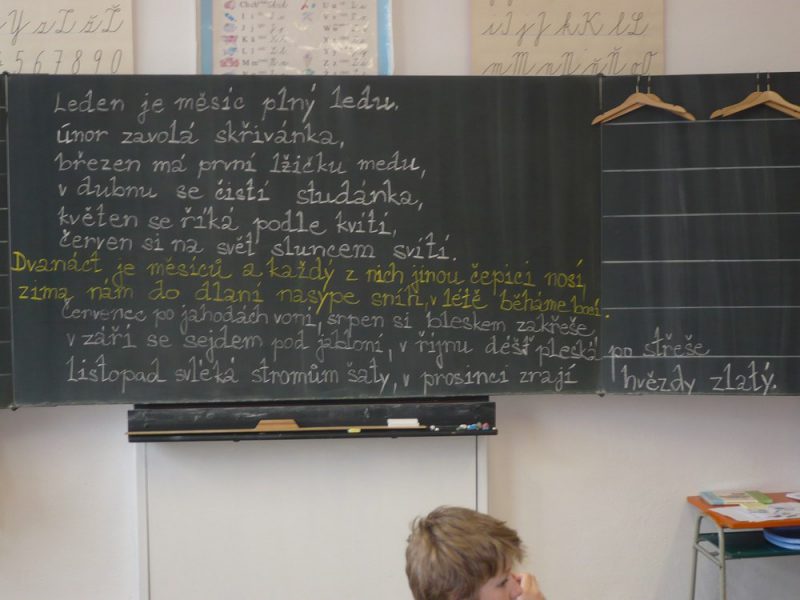 Y y Z z Ž ž
5 6 7 8 9 0
i I j J k K l L
m M n N ň Ň o O
Leden je měsíc plný ledu,
únor zavolá skřivánka,
březen má první lžičku medu,
v dubnu se čistí studánka,
květen se říká podle kvítí,
červen si na svět sluncem svítí.
Dvanáct je měsíců a každý z nich jinou čepici nosí,
zima nám do dlaní nasype sníh, v létě běháme bosí.
Červenec po jahodách voní, srpen si bleskem zakřeše,
v září se sejdem pod jabloní, v říjnu déšť pleská po střeše
listopad svléká stromům šaty, v prosinci zrají hvězdy zlatý.